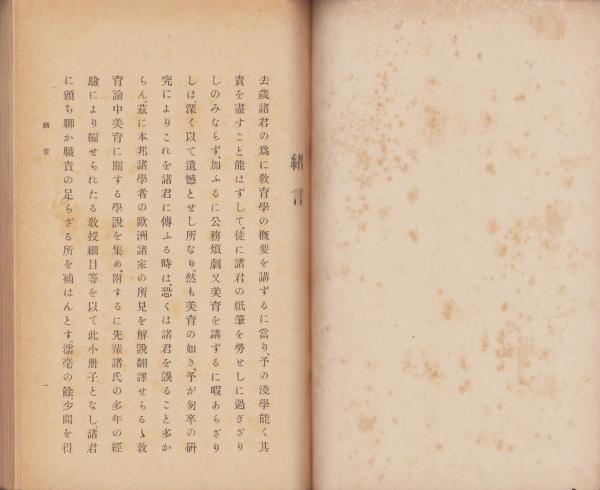 緒言
去歳諸君の爲に敎育學の槪要を講ずるに當り、予の淺學能く其
責を盡すこと能はずして、徒に諸君の紙筆を勞せしに過ぎざり
しのみならず、加ふるに公務煩劇又美育を講ずるに暇あらざり
しは、深く以て遺憾とせし所なり。然も美育の如き、予が匆卒の硏
究によりこれを諸君に傳ふる時は、恐くは諸君を誤ること多か
らん。茲に本邦諸學者の歐洲諸家の所見を解說翻譯せらるゝ敎
育論中美育に關する學說を集め、附するに先輩諸氏の多年の經
驗により編せられたる敎授細目等を以て此小册子となし、諸君
に頒ち聊か職責の足らざる所を補はんとす。濡毫の餘少間を得
緒言
一